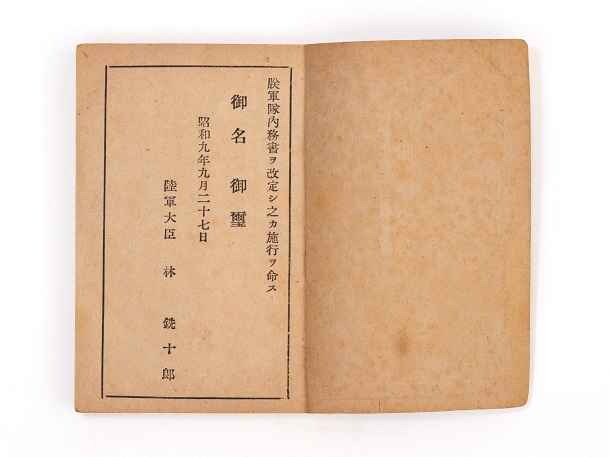 朕軍隊內務書ヲ改定シ之カ施行ヲ命ス
御名御璽
昭和九年九月二十七日
陸軍大臣 林 銑十郎